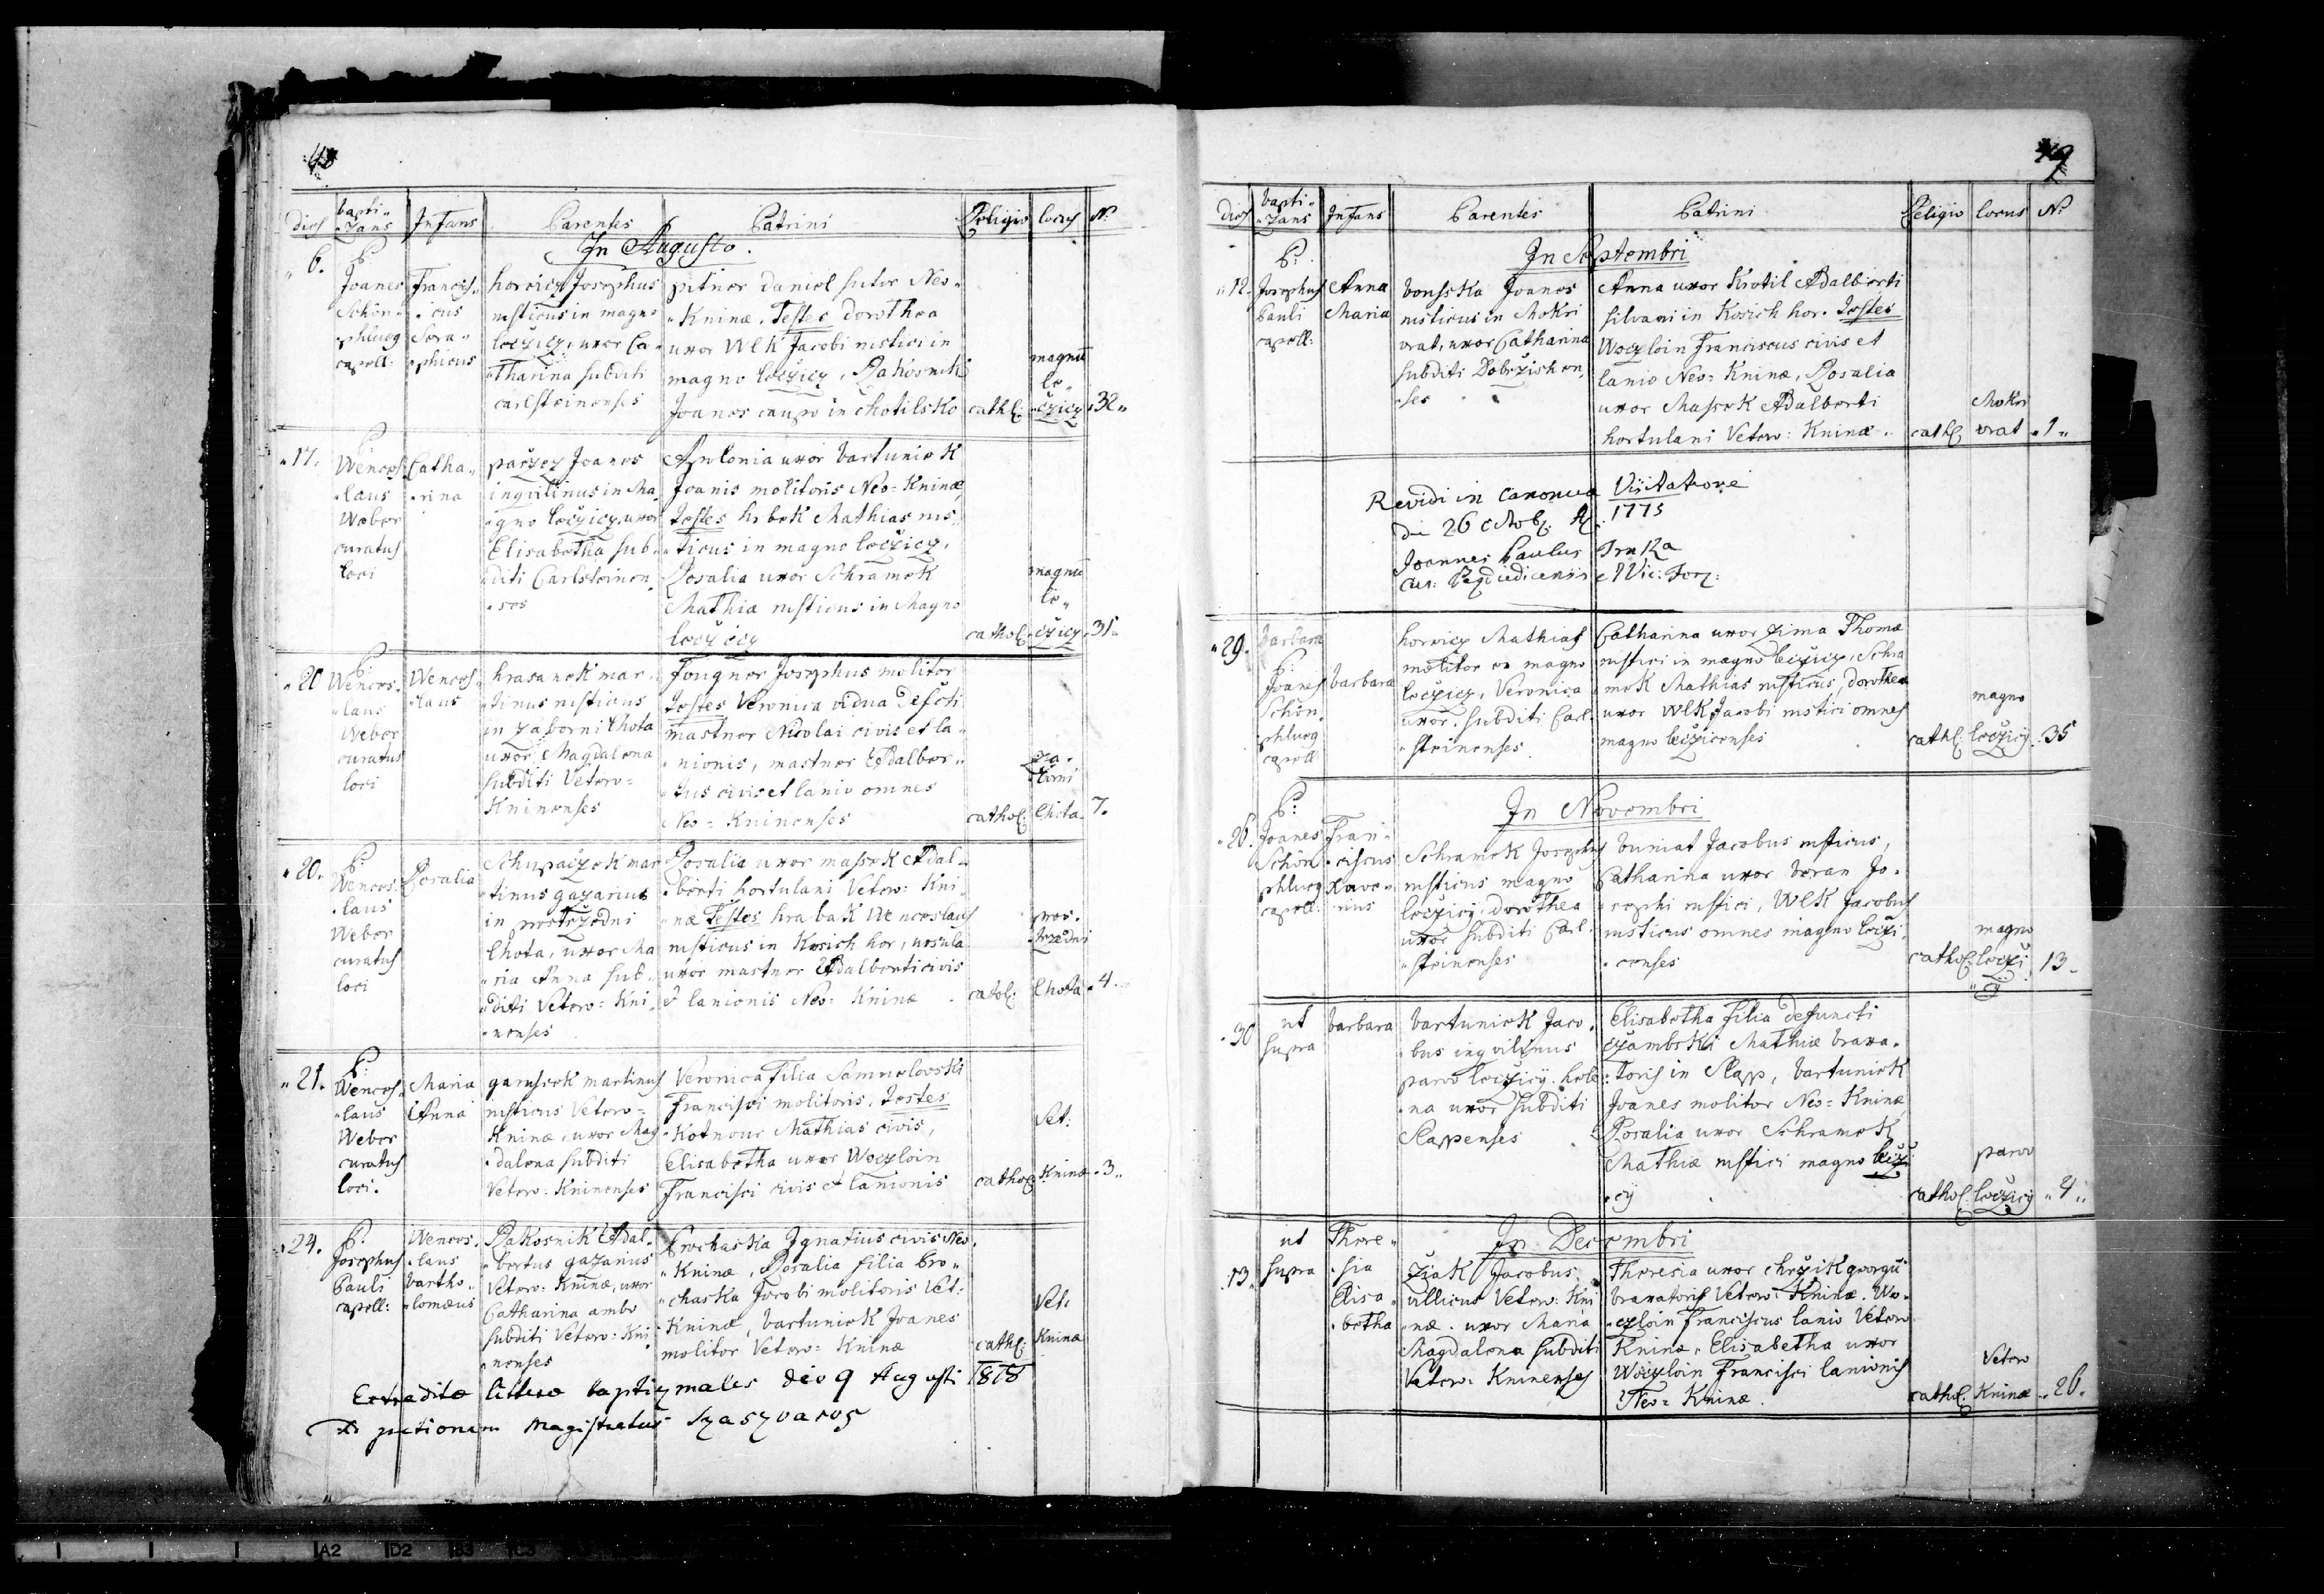 48
dies
bapti-
-zans
Infans
Parentes
Patrini
Religio
locus
N:
In Augusto.
6.
P:
Joanes
Schön-
phlueg
capell:
Francis-
-cus
Sera-
-phicus
horziczj Josephus
rusticus in magno
loczicz, uxor Ca-
-tharina subditi
carlsteinenses
pitner Daniel sutor Neo-
-Kninæ. Testes dorothea
uxor Wlk Jacobi rustici in
magno loczicz, Rakosnik
Joanes caupo in chotilsko
cathl:
magno
lo-
-czicz
32
17.
P:
Wences-
-laus
Weber
curatus
loci
Catha-
-rina
paczez Joanes
inqvilinus in Ma-
-gno loczicz, uxor
Elisabetha sub-
-diti Carlsteinen-
-ses
Apolonia uxor bartuniek
Joanis molitoris Neo-Kninæ,
Testes hrbek Mathias rus-
-ticus in magno loczicz,
Rosalia uxor Schramek
Mathiæ rusticus in Magno
loczicz
cathol:
magno
lo-
-czicz
31.
20
P:
Wences-
-laus
Weber
curatus
loci
Wences-
-laus
hrasanek mar-
-tinus rusticus
in zaborni Lhota
uxor Magdalena
subditi Vetero-
Kninenses
Fougner Josephus molitor
Testes Veronica vidua Defcti
mastner Nicolai civis et la-
-nionis, mastner Adalber-
-tus civis et lanio omnes
Neo-Kninenses
cathol:
za-
-borni
Lhota
7.
20.
P:
Wences-
-laus
Weber
curatus
loci
Rosalia
Schupaczek mar
-tinus gazarius
in prostrzedni
Lhota, uxor Ma
-ria Anna sub-
-diti Vetero: Kni-
-nenses
Rosalia uxor massek Adal-
-berti hortulani Vetero: Kni-
-næ Testes hrabak Wenceslaus
rusticus in Kosich hor, ursula
uxor mastner Adalberti civis
& lanionis Neo: Kninæ
catol:
pros-
-trzedni
Lhota
4.
21.
P:
Wences-
-laus
Weber
curatus
loci.
Maria
Anna
garussek martinus
rusticus Vetero-
Kninæ, uxor Mag
-dalena subditi
Vetero: Kninenses
Veronica filia Samuelovski
Francisci molitoris. Testes
Kotnour Mathias civis,
Elisabetha uxor Woczloin
Francisci civis et lanionis
cathol:
Vet:
Kninæ
3.
24.
P:
Josephus
Pauli
capell:
Wences-
-laus
bartho-
-lomæus
Rakosnik Adal-
-bertus gazarius
Vetero: Kninæ, uxor
Catharina ambo
subditi Vetero: Kni
-nenses
Prochaska Ignatius civis Neo-
-Kninæ, Rosalia filia Pro-
-chaska Jacobi molitoris Vet:
Kninæ, bartuniek Joanes
molitor Vetero: Kninæ
cathl:
Vet:
Kninæ
Extraditæ litteræ baptizmales die 9 Augusti 1818
Ad petionem Magistratus
49
dies
bapti-
-zans
Infans
Parentes
Patrini
Religio
locus
N:
In Septembri
12.
P:
Josephus
Pauli
capell:
Anna
Maria
bouska Joanes
rusticus in Mokri
vrat, uxor Catharina
subditi Dobrzischen-
-ses
Anna uxor Krotil Adalberti
silvani in Kosich hor. Testes
Woczloin Franciscus civis et
lanio Neo: Kninæ, Rosalia
uxor Massek Adalberti
hortulani Vetero: Kninæ.
cathl
Mokri
vrat
1
Revidi in Canonica Visitatione
die 26 1775
Joannes Paulus Trnka
29.
barbara
P:
Joanes
Schön-
phlueg
capell
barbara
horzicz Mathias
molitor ex magno
loczicz, Veronica
uxor, subditi Carl-
-steinenses
Catharina uxor zima Thomæ
rustici in magno loczicz, Schra
mek Mathias rusticus, dorothea
uxor Wlk Jacobi rustici omnes
magno loczicenses
cathl:
magno
loczicz
35
In Novembri
26.
P:
Joanes
Schön
phlueg
capell:
Fran-
-ciscus
Xave-
-rius
Schramek Josephus
rusticus magno
loczicz, dorothea
uxor subditi Carl-
-steinenses
buniat Jacobus rusticus,
Catharina uxor beran Jo-
-sephi rustici, Wlk Jacobus
rusticus omnes magno loczi-
-censes
cathol:
magno
loczi
-cz
13
30
ut
supra
barbara
bartuniek Jaco-
-bus inqvilinus
parvo loczicz. hele-
-na uxor subditi
Slappenses
Elisabetha filia defuncti
czambski Mathiæ braxa-
-toris in Slapp, bartuniek
Joanes molitor Neo: Kninæ
Rosalia uxor Schramek
Mathiæ rustici magno loczi
-cz
cathol:
parvo
loczicz
4
In Decembri
13
ut
supra
There-
-sia
Elisa-
-betha
ziak Jacobus
villicus Vetero: Kni
-næ. uxor Maria
Magdalena subditi
Vetero: Kninenses
Theresia uxor georgii
braxatoris Vetero: Kninæ. Wo-
-czloin Franciscus lanio Vetero
Kninæ, Elisabetha uxor
Woczloin Francisci lanionis
Neo: Kninæ.
cathol:
Vetero
Kninæ
26.
A2
D2